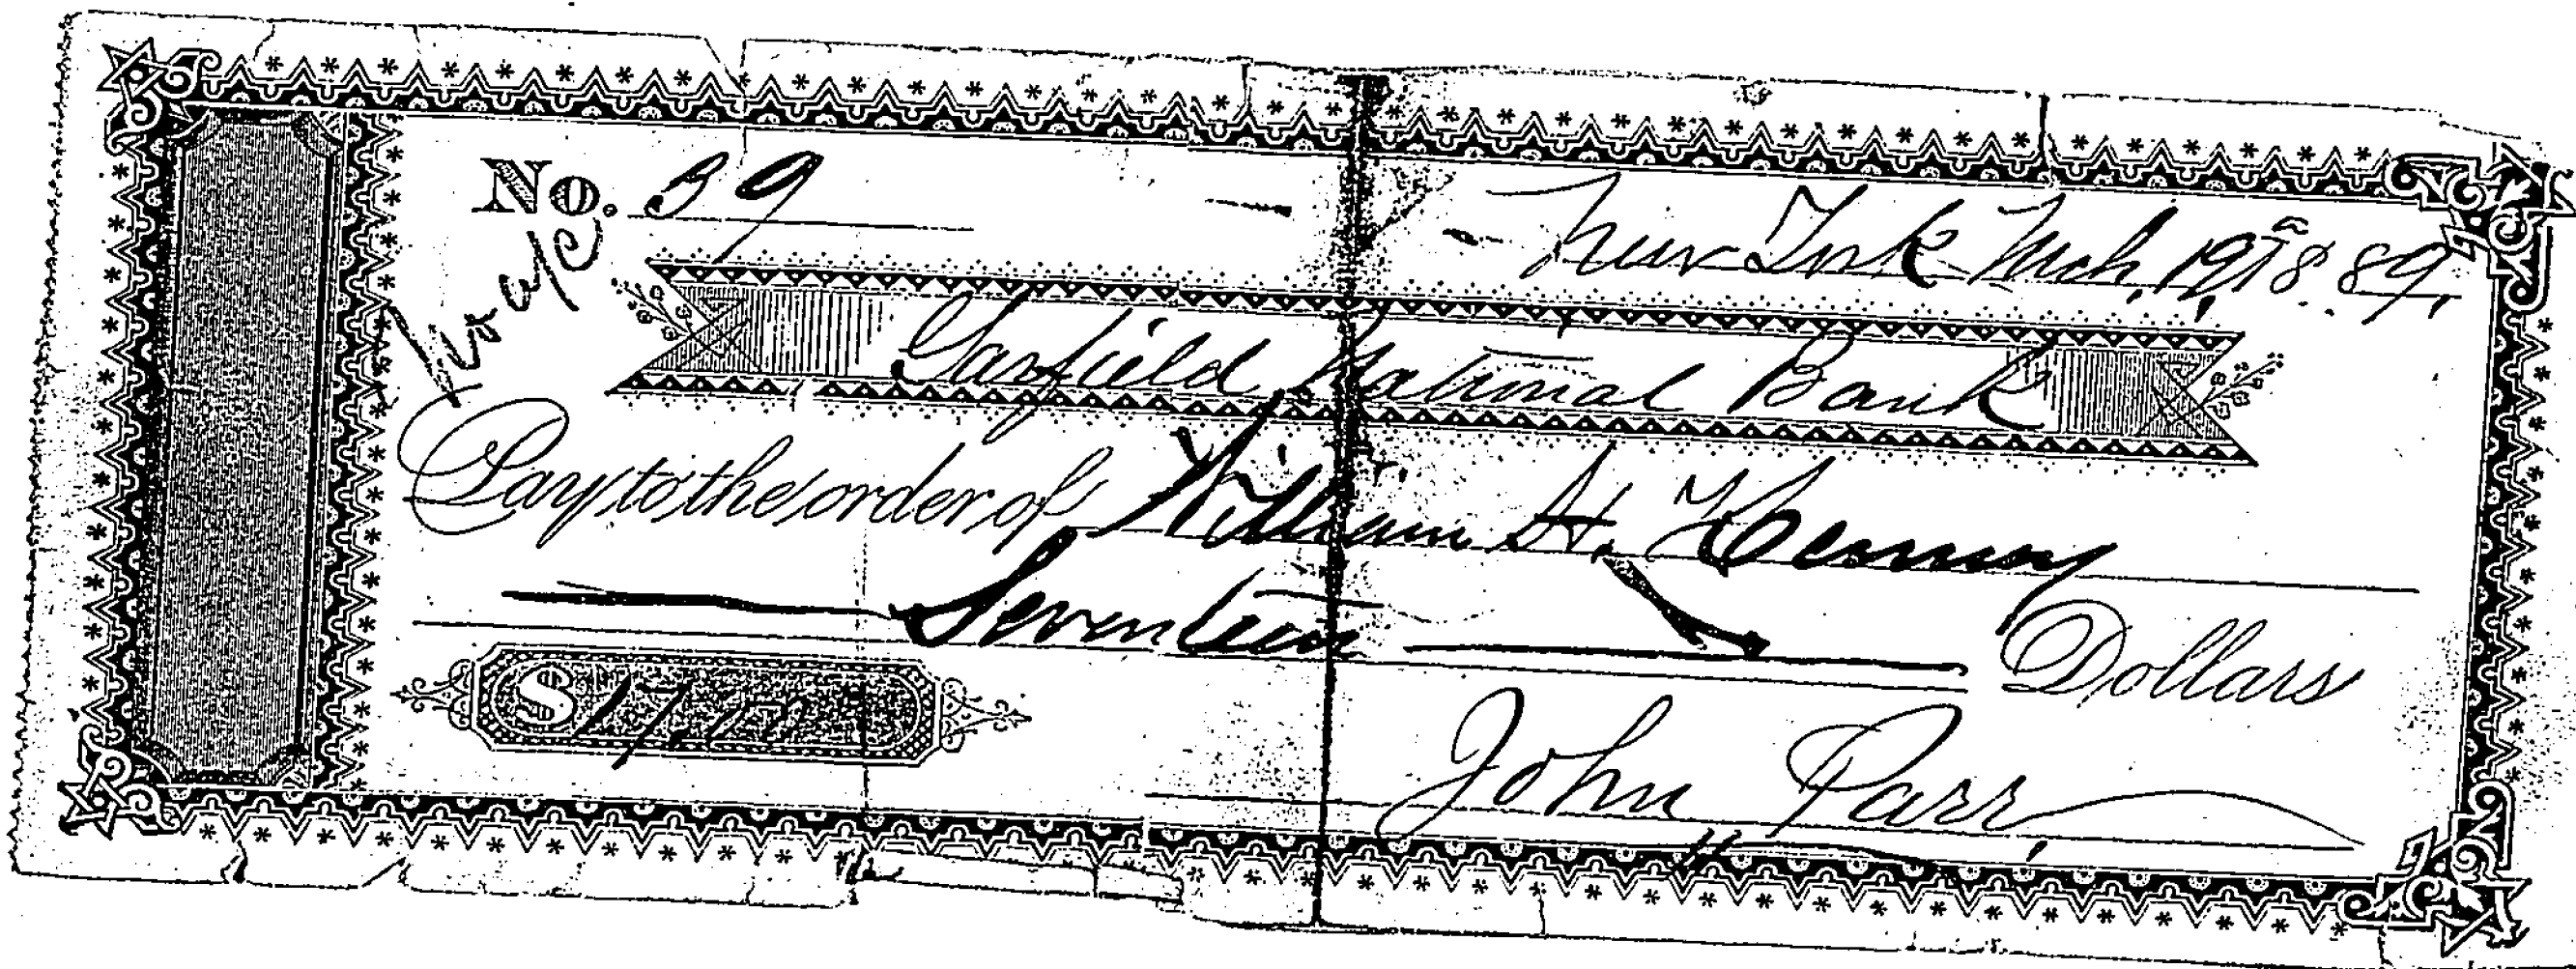 No. 39
No a/c
New York Mch. 19th 1889.
Garfield National Bank
Pay to the order of William H. Kenny
Seventeen Dollars
$ 17
John Parr